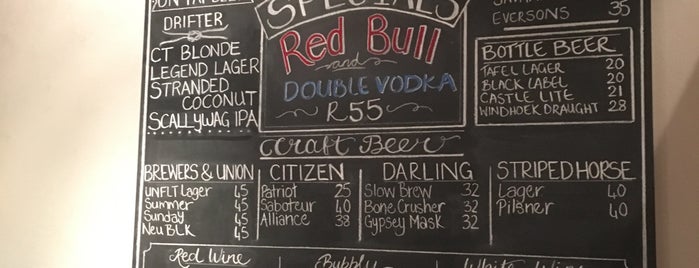 SPECIALS
Red Bull
and
DOUBLE VODKA
R55
DRIFTER
CT BLONDE
LEGEND LAGER
STRANDED
COCONUT
SCALLYWAG IPA
EVERSONS 35
BOTTLE BEER
TAFEL LAGER 20
BLACK LABEL 20
CASTLE LITE 21
WINDHOEK DRAUGHT 28
Craft Beer
BREWERS & UNION
UNFLT Lager 45
Summer 45
Sunday 45
Neu BLK 45
CITIZEN
Patriot 25
Saboteur 40
Alliance 38
DARLING
Slow Brew 32
Bone Crusher 32
Gypsey Mask 32
STRIPED HORSE
Lager 40
Pilsner 40
Red Wine
Bubbly
White Wine